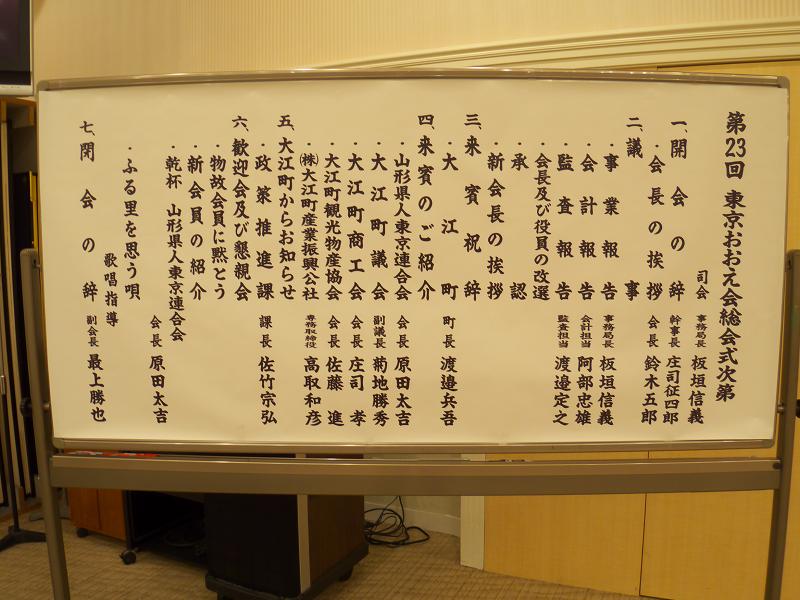 第23回 東京おおえ会総会式次第
司会 事務局長 板垣信義
一、開会の辞 幹事長 庄司征四郎
・会長の挨拶 会長 鈴木五郎
二、議事
・事業報告 事務局長 板垣信義
・会計報告 会計担当 阿部忠雄
・監査報告 監査担当 渡邉定之
・会長及び役員の改選
・承認
・新会長の挨拶
三、来賓祝辞
・大江町 町長 渡邉兵吾
四、来賓のご紹介
・山形県人東京連合会 会長 原田太吉
・大江町議会 副議長 菊地勝秀
・大江町商工会 会長 庄司孝
・大江町観光物産協会 会長 佐藤進
・㈱大江町産業振興公社 専務取締役 高取和彦
五、大江町からお知らせ
・政策推進課 課長 佐竹宗弘
六、歓迎会及び懇親会
・物故会員に黙とう
・新会員の紹介
・乾杯 山形県人東京連合会
会長 原田太吉
・ふる里を思う唄
歌唱指導
七、閉会の辞 副会長 最上勝也